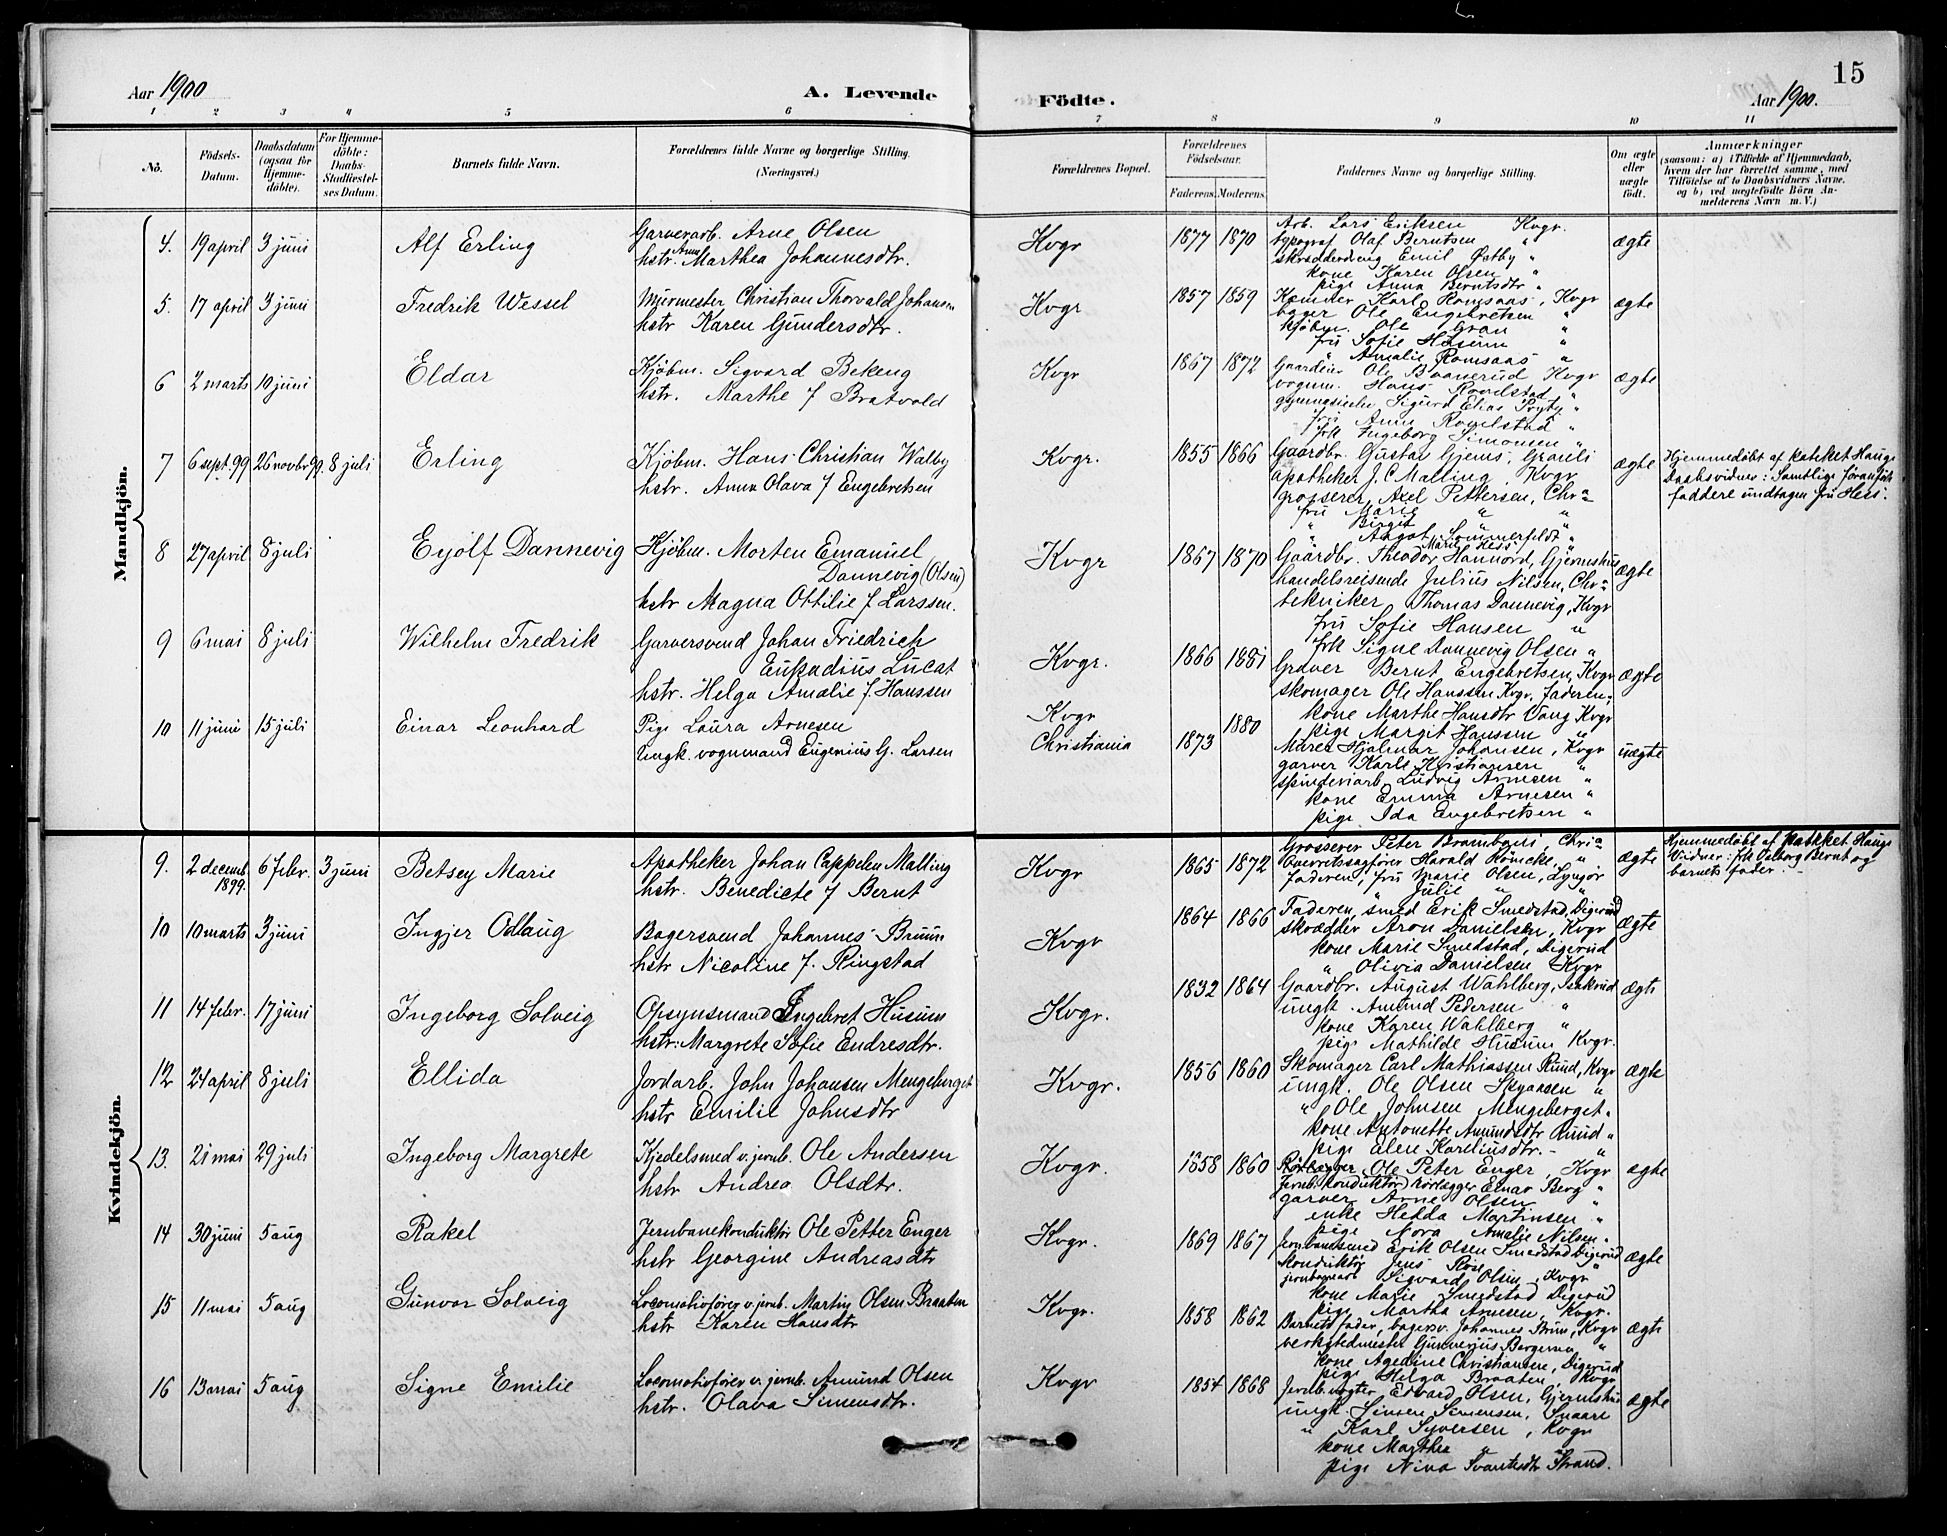 15
Aar 1900
A. Levende
Födte.
Aar 1900.
1 2 3 4 5 6 7 8 9 10 11
No.
Födsels-Datum.
Daabsdatum (ogsaa for Hjemme-döbte).
For Hjemme-döbte: Daabs-Stadfæstel-ses Datum.
Barnets fulde Navn.
Forældrenes fulde Navne og borgerlige Stilling. (Næringsvei.)
Forældrenes Bopæl.
Forældrenes Födselsaar.
Faderens. Moderens.
Faddernes Navne og borgerlige Stilling.
Om ægte eller uægte født.
Anmærkninger
(saasom: a) i Tilfælde af Hjemmedaab, hvem der har forrettet samme, med Tilföielse af to Daabsvidners Navne, og b) ved uægtefödte Börn An-melderens Navn m. V.)
Mandkjön.
4. 19 april 3 juni Alf Erling
Garverarb. Arne Olsen
hstr. Anne Marthea Johannesdtr.
Kvgr 1877 1870
Arb. Lars Eriksen Kvgr.
typograf Olaf Berntsen "
skrædderdreng Emil Østby "
kone Karen Olsen "
pige Anna Berntsdtr "
ægte
5. 17 april 3 juni Fredrik Wessel
Murmester Christian Thorvald Johansen
hstr Karen Gundersdtr.
Kvgr 1857 1859
Karl Romsaas, Kvgr
bager Ole Engebretsen "
kjöbm. Ole Gran "
fru Sofie "
" Amalie Romsaas "
ægte
6 2 marts 10 juni Eldar
Kjöbm. Sigvard Bekeng
hstr. Marthe f Bratvold
Kvgr 1867 1872
Gaardeier Ole Kvgr
vognm. Hans "
Sigurd Elias "
fru Anna "
frk Ingeborg Simonsen "
ægte
7 6 sept. 99 26 novbr 99. 8 juli Erling
Kjöbm. Hans Christian Walby
hstr. Anna Olava f Engebretsen
Kvgr. 1855 1866
Gaardbr. Gustav Gjems, Granli
apotheker J. C. Malling, Kvgr
grosserer Axel Pettersen, Chra
fru Marie " "
" Birgit "
" Aagot Sommerfeldt "
Marie Hess "
ægte
Hjemmedøbt af kateket Hauge
Daabsvidner: Samtlige foranførte
faddere undtagen fru Hess.
8 27 april 8 juli Eyolf Dannevig
Kjöbm. Morten Emanuel
Dannevig (Olsen)
hstr Magna Ottilie f Larssen.
Kvgr 1867 1870
Gaardbr. Theodor Hannord, Gjermshus
handelsreisende Julius Nilsen, Chra
tekniker Thomas Dannevig, Kvgr
fru Sofie Hansen "
frk Signe Dannevig Olsen "
ægte
9 6 mai 8 juli Wilhelm Fredrik
Garversvend Johan Friedrich
Eukadius Lucat
hstr. Helga Amalie f. Hanssen
Kvgr. 1866 1881
Graver Bernt Engebretsen, Kvgr
skomager Ole Hanssen Kvgr, faderen,
kone Marthe Hansdtr Vang Kvgr
pige Margit Hanssen "
ægte
10 11 juni 15 juli Einar Leonhard
Pige Laura Arnesen
Ungk. vognmand Eugenius G. Larsen
Kvgr 1880
Christiania 1873
Maler Hjalmar Johansen, Kvgr
garver Karl Kristiansen "
spinderiarb. Ludvig Arnesen "
kone Emma Arnesen "
pige Ida Engebretsen "
uægte
Kvindekjön.
9. 2 decemb. 1899. 6 febr. 3 juni Betsey Marie
Apotheker Johan Cappelen Malling
hstr. Benedicte f Bernt
Kvgr 1865 1872
Grosserer Peter Chria
Overretssagförer Harald "
faderen, fru Marie Olsen, Lyngör
" Julie " "
ægte
Hjemmedøbt af kateket Hauge
Vidner: frk Valborg Bernt og
barnets fader.
10 10 marts 3 juni Ingjer Odlaug
Bagersvend Johannes Bruun
hstr Nicoline f. Ringstad
Kvgr 1864 1866
Faderen, smed Erik Smedstad, Digerud
skrædder Aron Danielsen, Kvgr
kone Marie Smedstad, Digerud
" Olivia Danielsen Kvgr
ægte
11 14 febr. 17 juni Ingeborg Solveig
Opsynsmand Ingebret Husum
hstr: Margrete Sofie Endresdtr.
Kvgr. 1832 1864
Gaardbr. August Wahlberg, Isakrud
ungk. Amund Pedersen "
kone Karen Wahlberg "
pige Mathilde Husum Kvgr.
ægte
12 24 april 8 juli Ellida
Jordarb. John Johansen Mengeberget
hstr Emilie Johnsdtr
Kvgr. 1856 1860
Skomager Carl Mathiassen Ruud, Kvgr
ungk. Ole Olsen "
" Ole Johnsen Mengeberget "
kone Antonette Amundsdtr Ruud "
pige Elen Kareliusdtr. "
ægte
13. 21 mai 29 juli Ingeborg Margrete
Kjedelsmed v. jernb. Ole Andersen
hstr Andrea Olsdtr.
Kvgr. 1858 1860
Ole Peter Enger, Kvgr
Jernb. konduktör Rörlægger Einar Berg "
garver Arne Olsen "
enke Hedda Martinsen "
pige Nora Amalie Nilsen "
ægte
14 30 juni 5 aug Rakel
Jernbanekonduktör Ole Petter Enger
hstr Georgine Andreasdtr
Kvgr. 1869 1867
Jernbanesmed Erik Olsen Smedstad Digerud
Konduktör Jens Rose "
jernbanearb Sigvard Olsen Kvgr
kone Marie Smedstad Digerud
pige Martha Arnesen, Kvgr.
ægte
15 11 mai 5 aug Gunvor Solveig
Locomotivfører v. jernb. Martin Olsen Braaten
hstr Karen Hansdtr
Kvgr. 1858 1862
Barnets fader, bagersv. Johannes Bruun, Kvgr
verkstedmester Gunnerius Bergersen "
kone Agedine Christiansen, Digerud
pige Helga Braaten, Kvgr
ægte
16 13 mai 5 aug Signe Emilie
Locomotivfører v. jernb. Amund Olsen
hstr. Olava Simensdtr.
Kvgr 1854 1868
Jernb.vogter Edvard Olsen, Gjermshus
ungk. Simen Simensen, Snaare
" Karl Syversen, Kvgr
kone Marthea "
pige Nina Svartesdtr Strand.
ægte